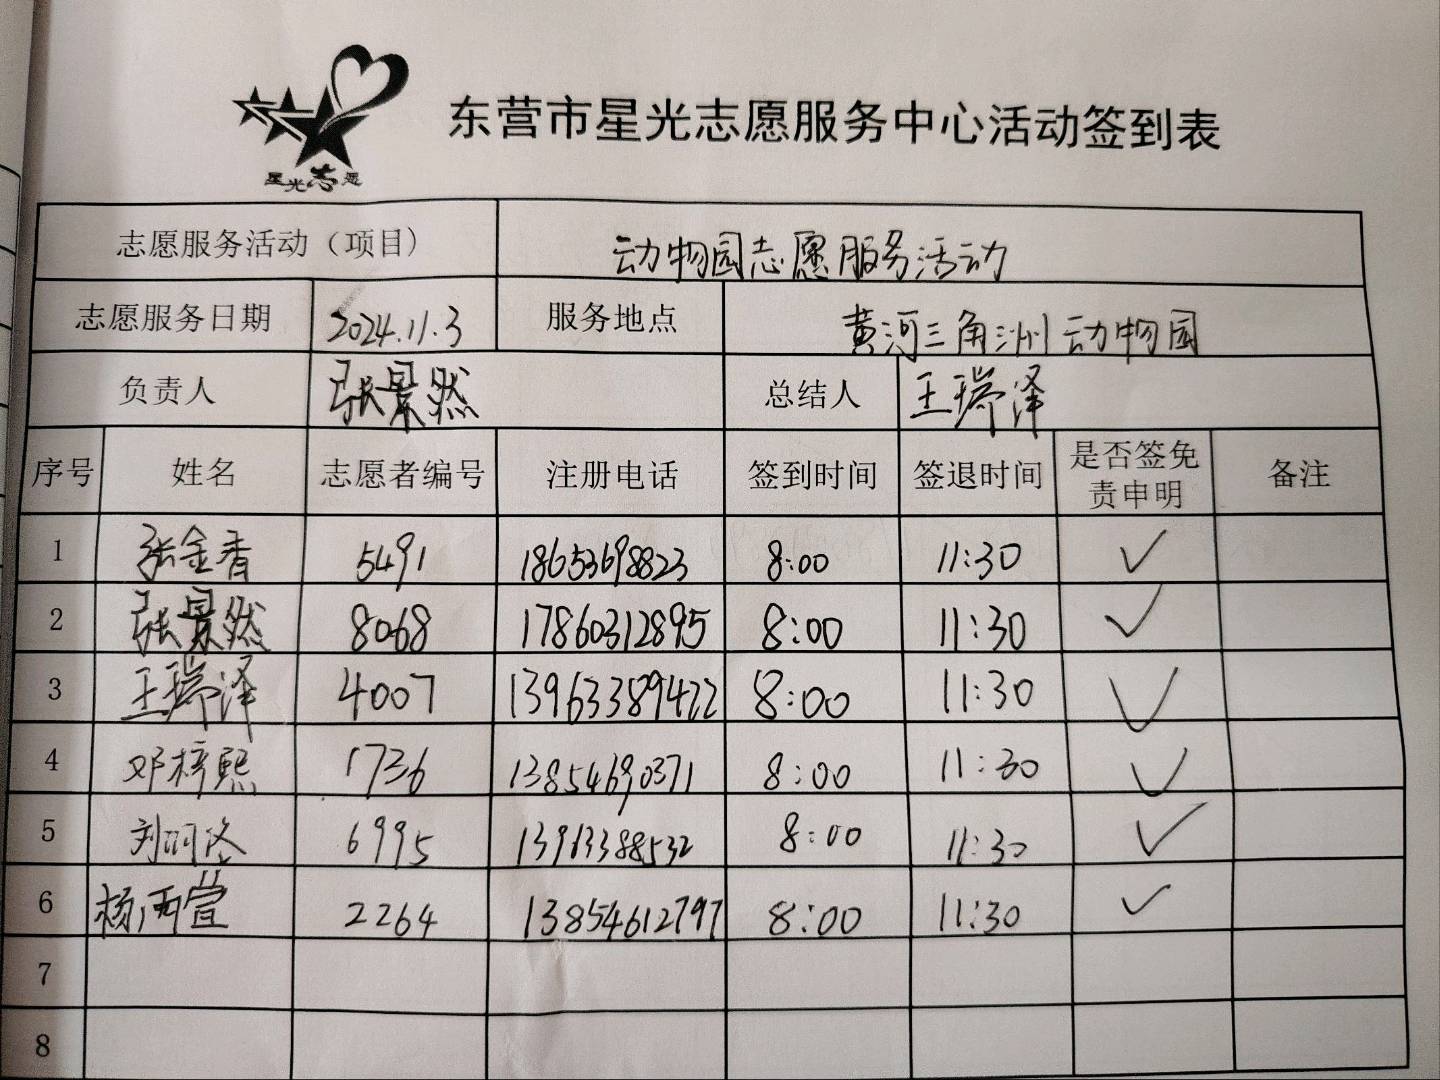 星光志愿
东营市星光志愿服务中心活动签到表
志愿服务活动（项目） 动物园志愿服务活动
志愿服务日期 2024.11.3 服务地点 黄河三角洲动物园
负责人 张景然 总结人 王瑞泽
序号 姓名 志愿者编号 注册电话 签到时间 签退时间 是否签免责申明 备注
1 张金香 5491 18653698823 8:00 11:30 ✓
2 张景然 8068 17860312895 8:00 11:30 ✓
3 王瑞泽 4007 13963389422 8:00 11:30 ✓
4 邓梓熙 1736 13854690371 8:00 11:30 ✓
5 刘 6995 13963388532 8:00 11:30 ✓
6 杨雨萱 2264 13854612797 8:00 11:30 ✓
7
8